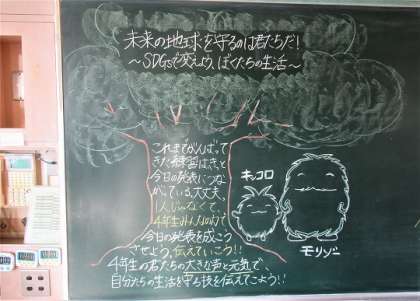 未来の地球を守るのは君たちだ！
～SDGsで変えよう、ぼくたちの生活～
これまでがんばって
きた練習はきっと
今日の発表につな
がっている。大丈夫。
1人じゃなくて、
4年生みんなの力で
今日の発表を成こう
させよう、伝えていこう！！
4年生の君たちの大きな声と元気で、
自分たちの生活を守る技を伝えてこよう！！
キッコロ
モリゾー